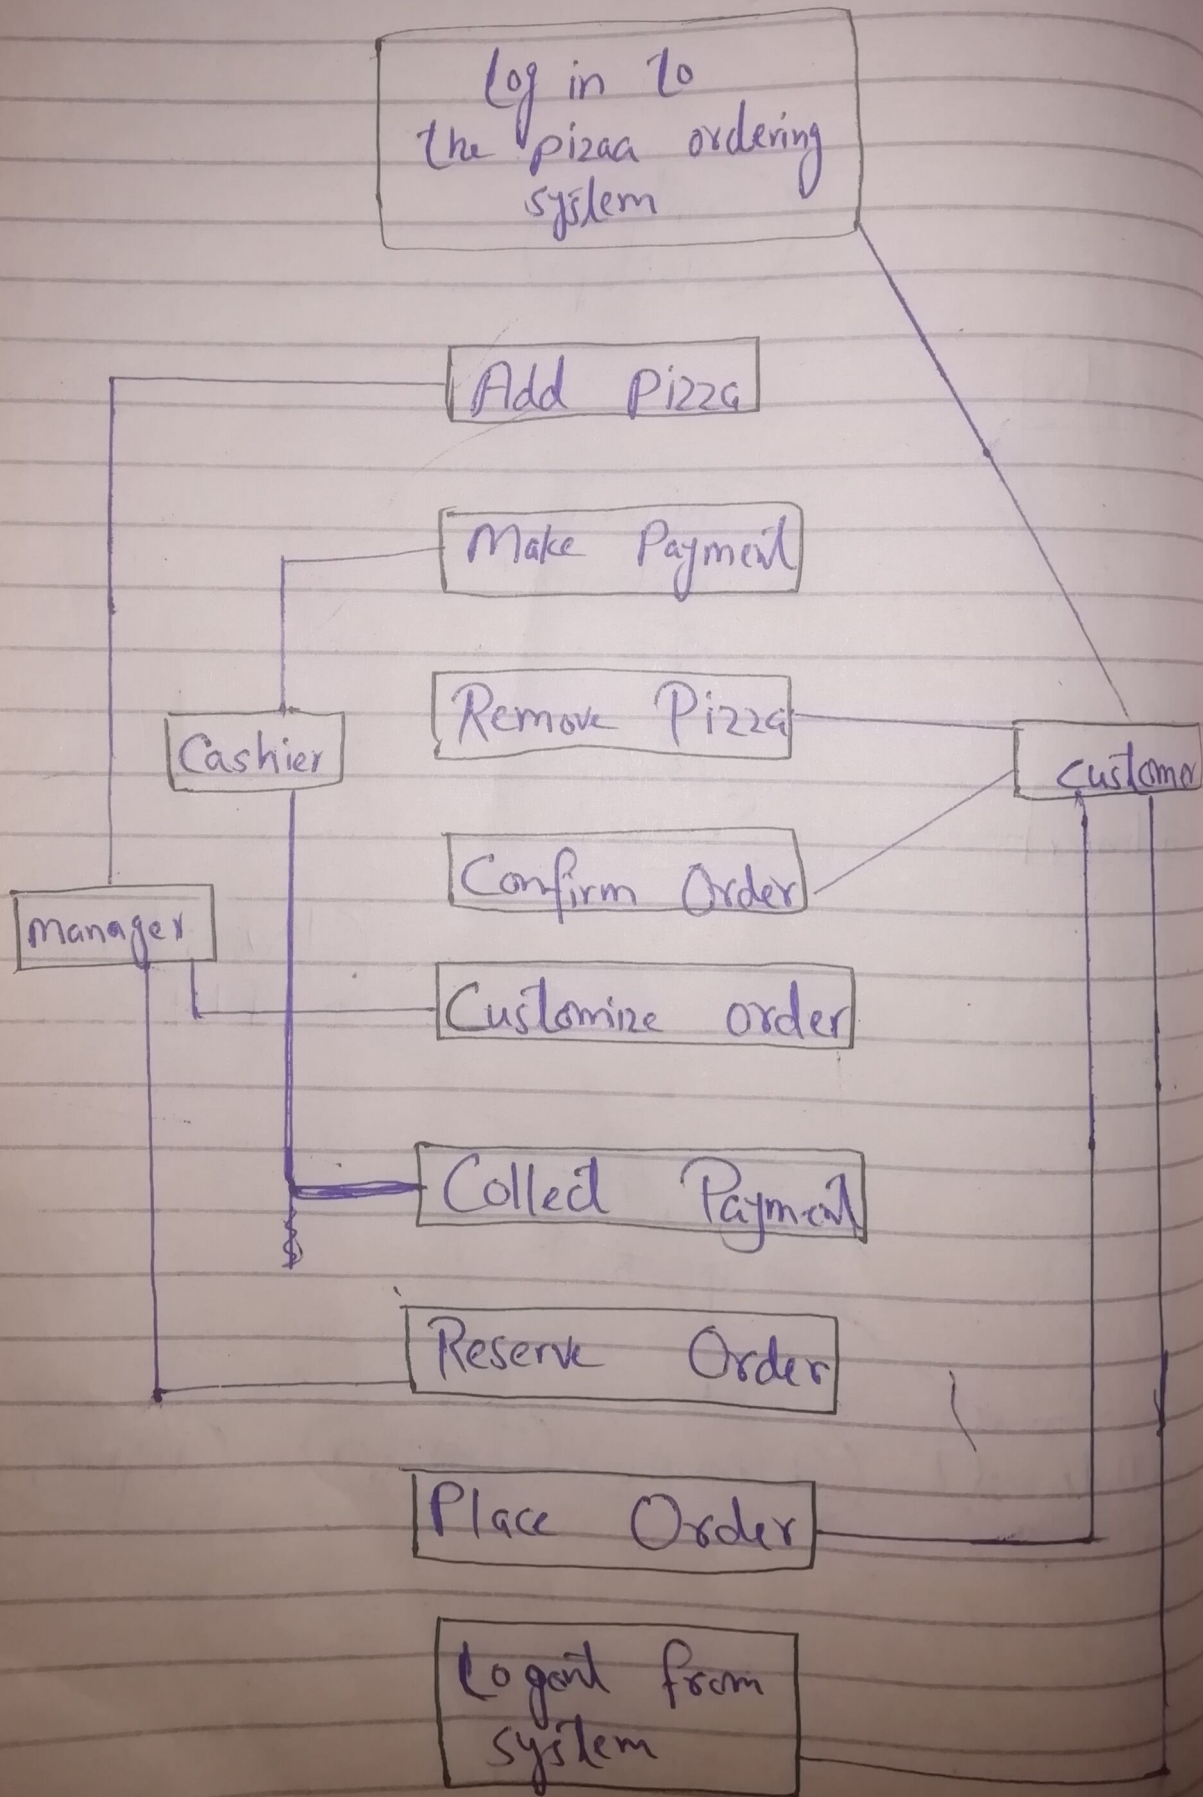 Log in to
the pizaa ordering
system
Add Pizza
Make Payment
Remove Pizza
Cashier
Customer
Confirm Order
Manager
Customize order
Collect Payment
Reserve Order
Place Order
Logout from
system